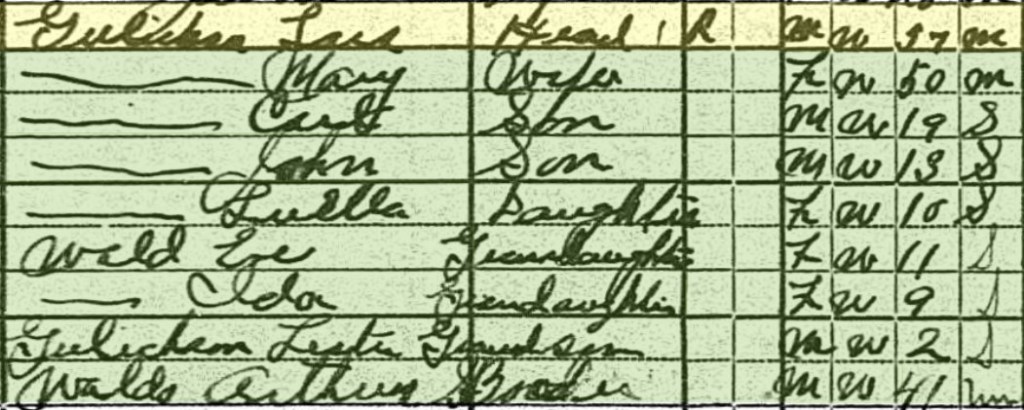 Gulickson Lars Head 1 R M W 57 M
Mary Wife F W 50 M
Carl Son M W 19 S
John Son M W 13 S
Luella Daughter F W 10 S
Wald Eve Granddaughter F W 11 S
Ida Grandaughter F W 9 S
Gulickson Lester Grandson M W 2 S
Walds Arthur Boarder M W 41